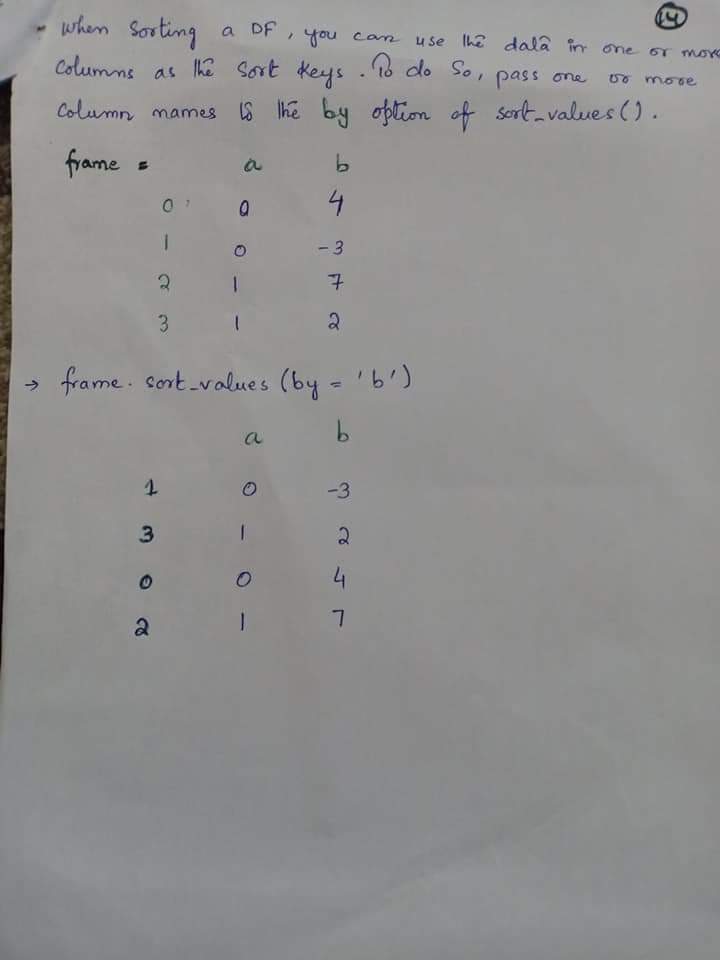 14
- When sorting a DF, you can use the data in one or more
columns as the sort keys. To do so, pass one or more
column names to the by option of sort_values().
frame = a b
0 0 4
1 0 -3
2 1 7
3 1 2
→ frame. sort_values (by = 'b')
a b
1 0 -3
3 1 2
0 0 4
2 1 7